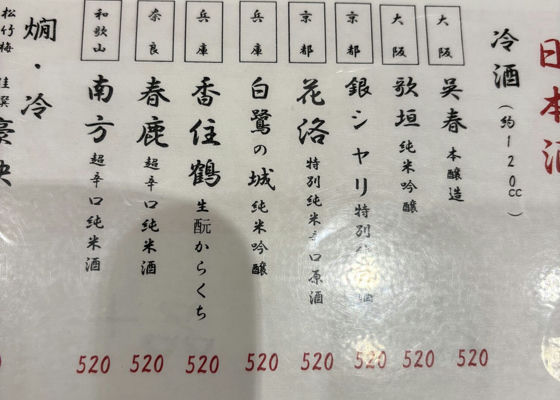 日本酒
冷酒（約120cc）
大阪 呉春 本醸造 520
大阪 歌垣 純米吟醸 520
京都 銀シャリ 特別 酒 520
京都 花洛 特別純米辛口原酒 520
兵庫 白鷺の城 純米吟醸 520
兵庫 香住鶴 生酛からくち 520
奈良 春鹿 超辛口純米酒 520
和歌山 南方 超辛口純米酒 520
燗・冷
松竹梅 豪快